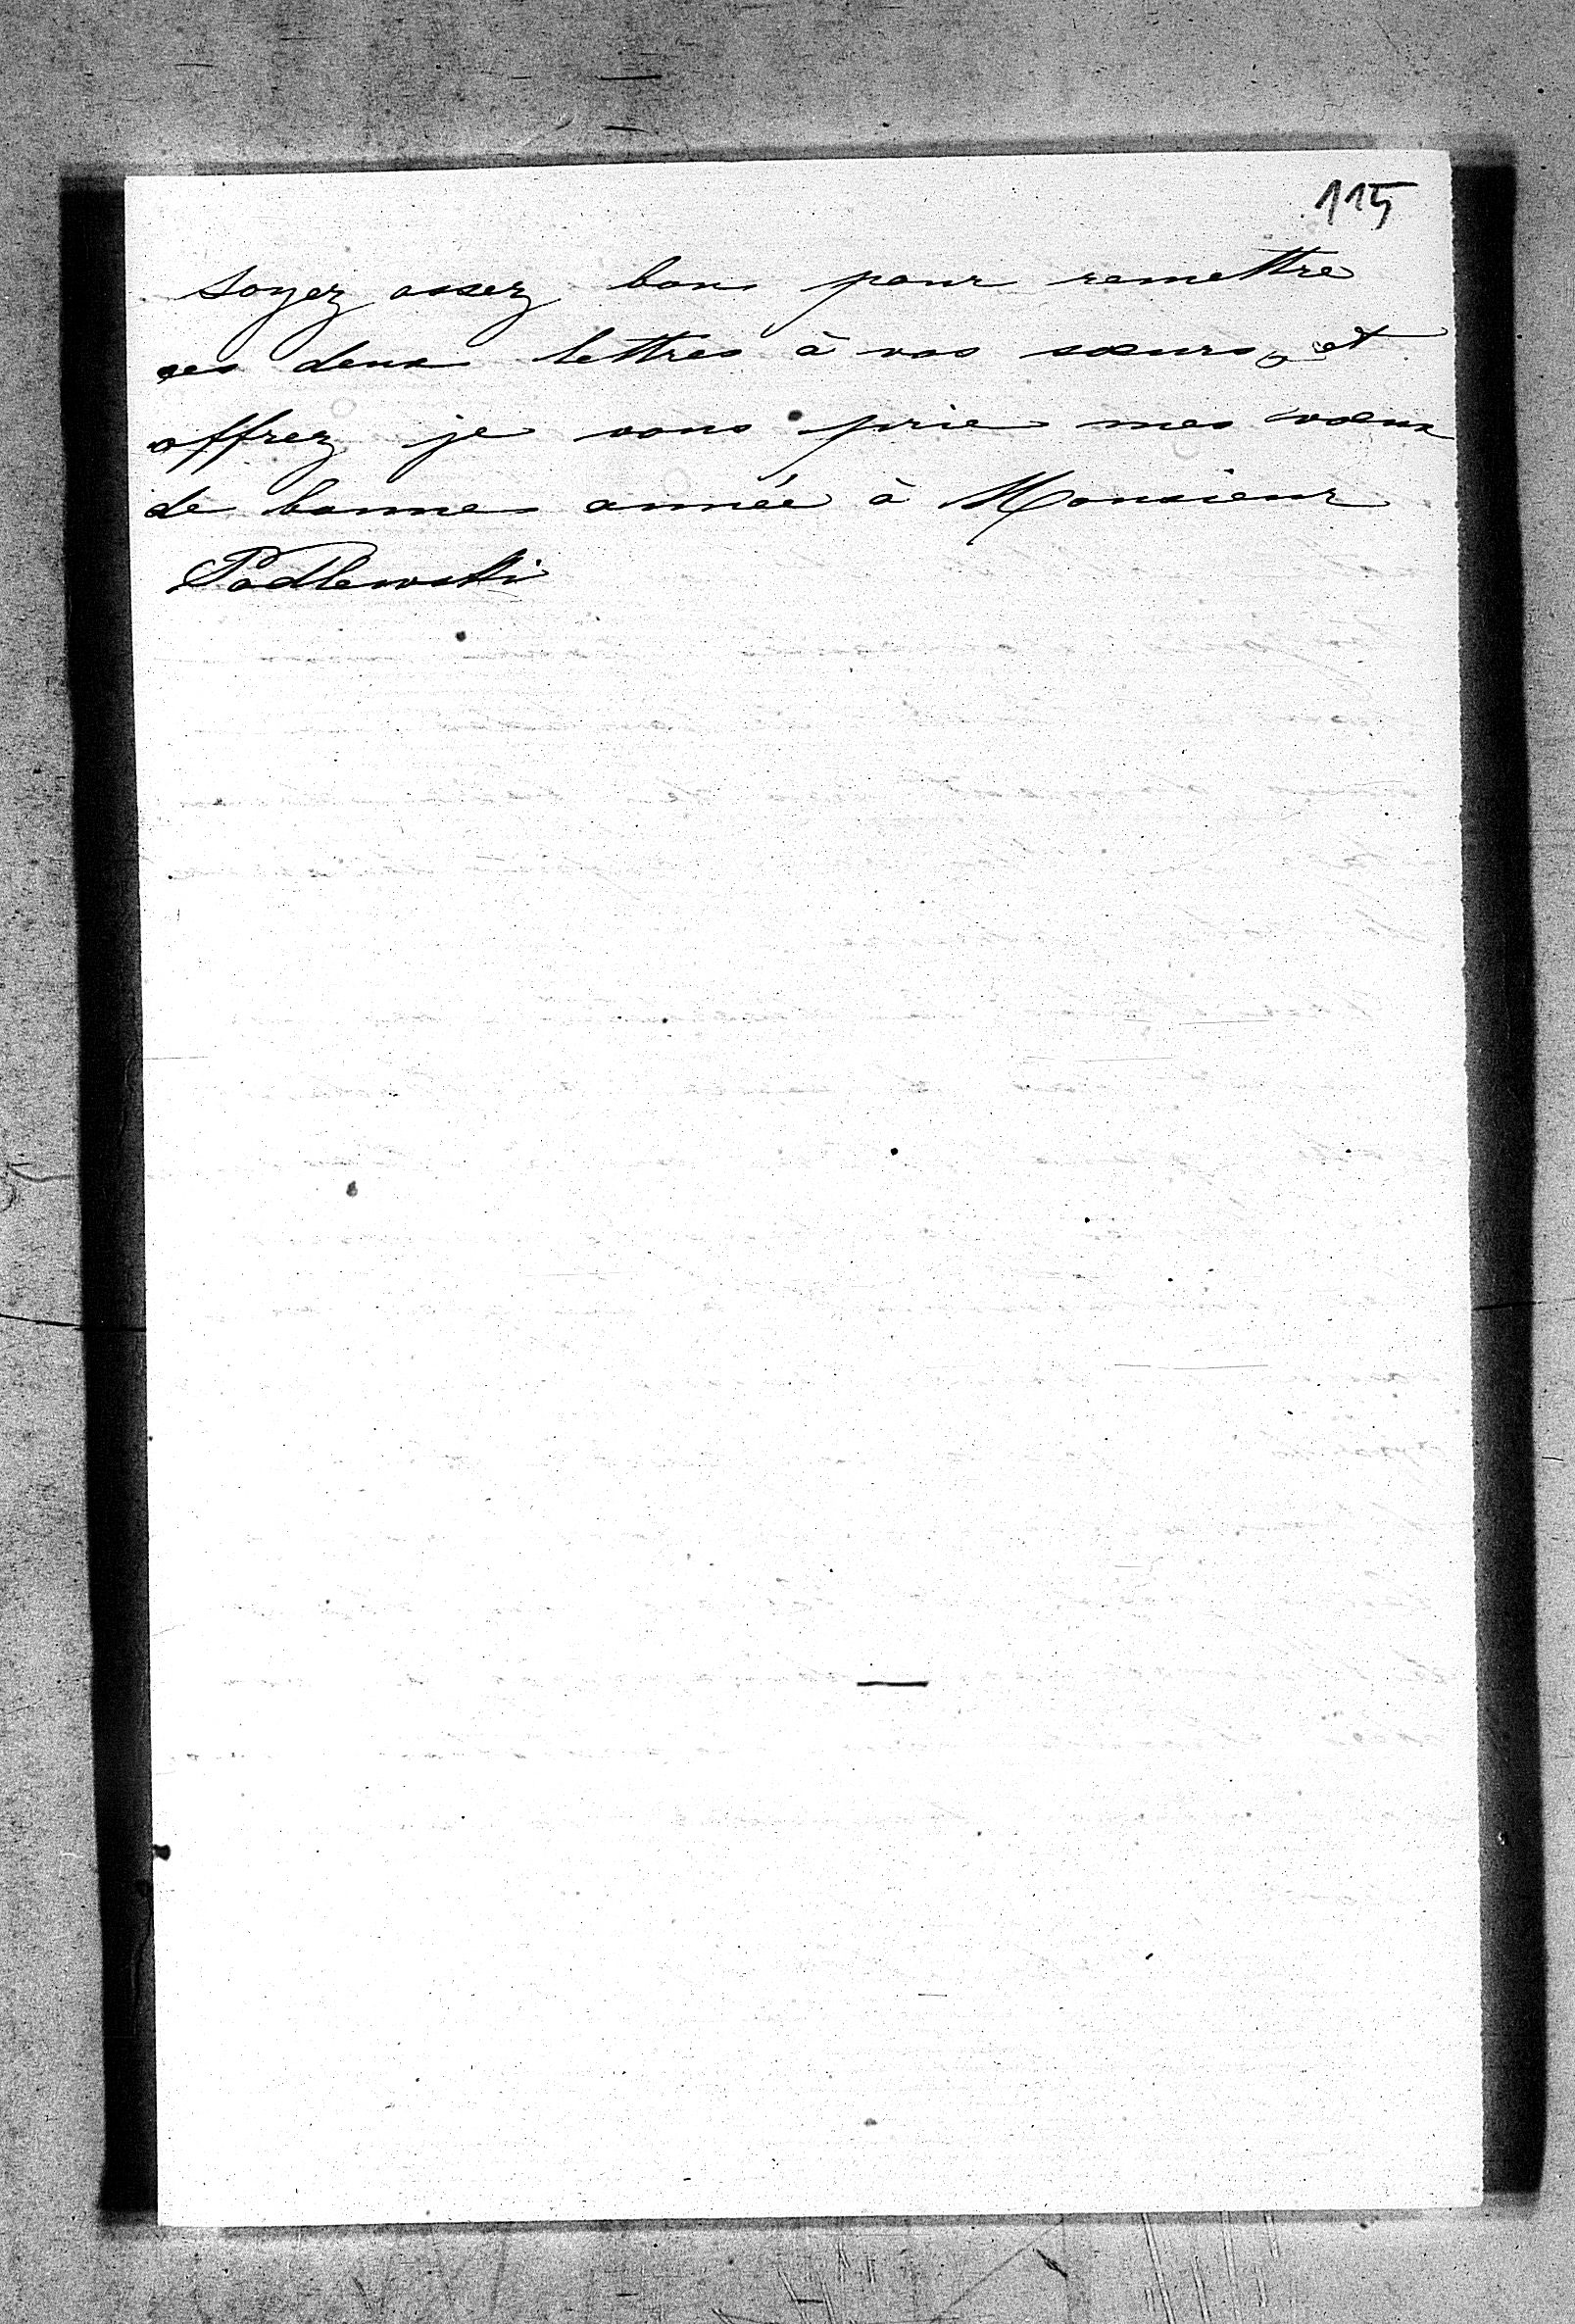 115
Soyez assez bon pour remettre
ces deux lettres à vos sœurs, et
offrez je vous prie mes vœux
de bonne année à Monsieur
Padlewski